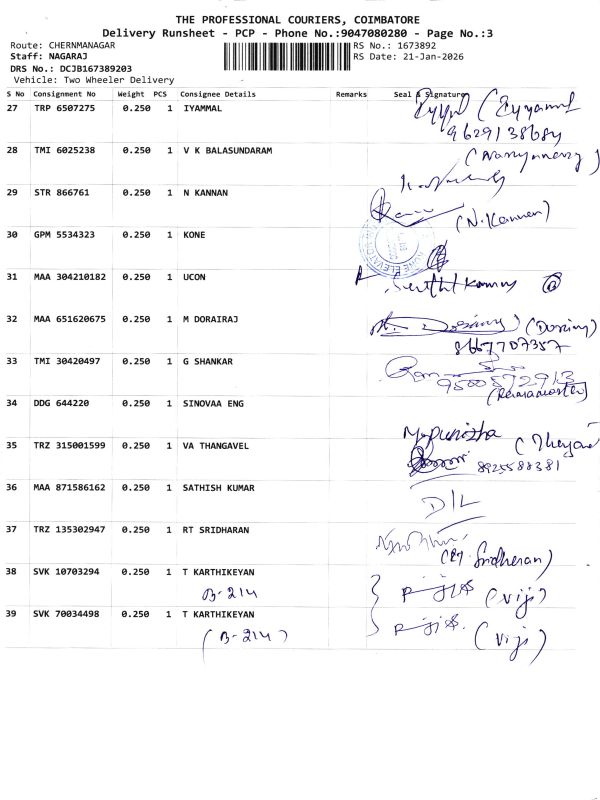 THE PROFESSIONAL COURIERS, COIMBATORE
Delivery Runsheet - PCP - Phone No.:9047080280 - Page No.:3
Route: CHERNMANAGAR RS No.: 1673892
Staff: NAGARAJ RS Date: 21-Jan-2026
DRS No.: DCJB167389203
Vehicle: Two Wheeler Delivery
S No Consignment No Weight PCS Consignee Details Remarks Seal & Signature
27 TRP 6507275 0.250 1 IYAMMAL
9629138684
28 TMI 6025238 0.250 1 V K BALASUNDARAM
29 STR 866761 0.250 1 N KANNAN
(N.Kannan)
30 GPM 5534323 0.250 1 KONE
31 MAA 304210182 0.250 1 UCON
32 MAA 651620675 0.250 1 M DORAIRAJ
8667707357
33 TMI 30420497 0.250 1 G SHANKAR
9500592913
34 DDG 644220 0.250 1 SINOVAA ENG
35 TRZ 315001599 0.250 1 VA THANGAVEL
8925588381
36 MAA 871586162 0.250 1 SATHISH KUMAR
D/L
37 TRZ 135302947 0.250 1 RT SRIDHARAN
38 SVK 10703294 0.250 1 T KARTHIKEYAN
B-214 (Viji)
39 SVK 70034498 0.250 1 T KARTHIKEYAN
(B-214) (Viji)